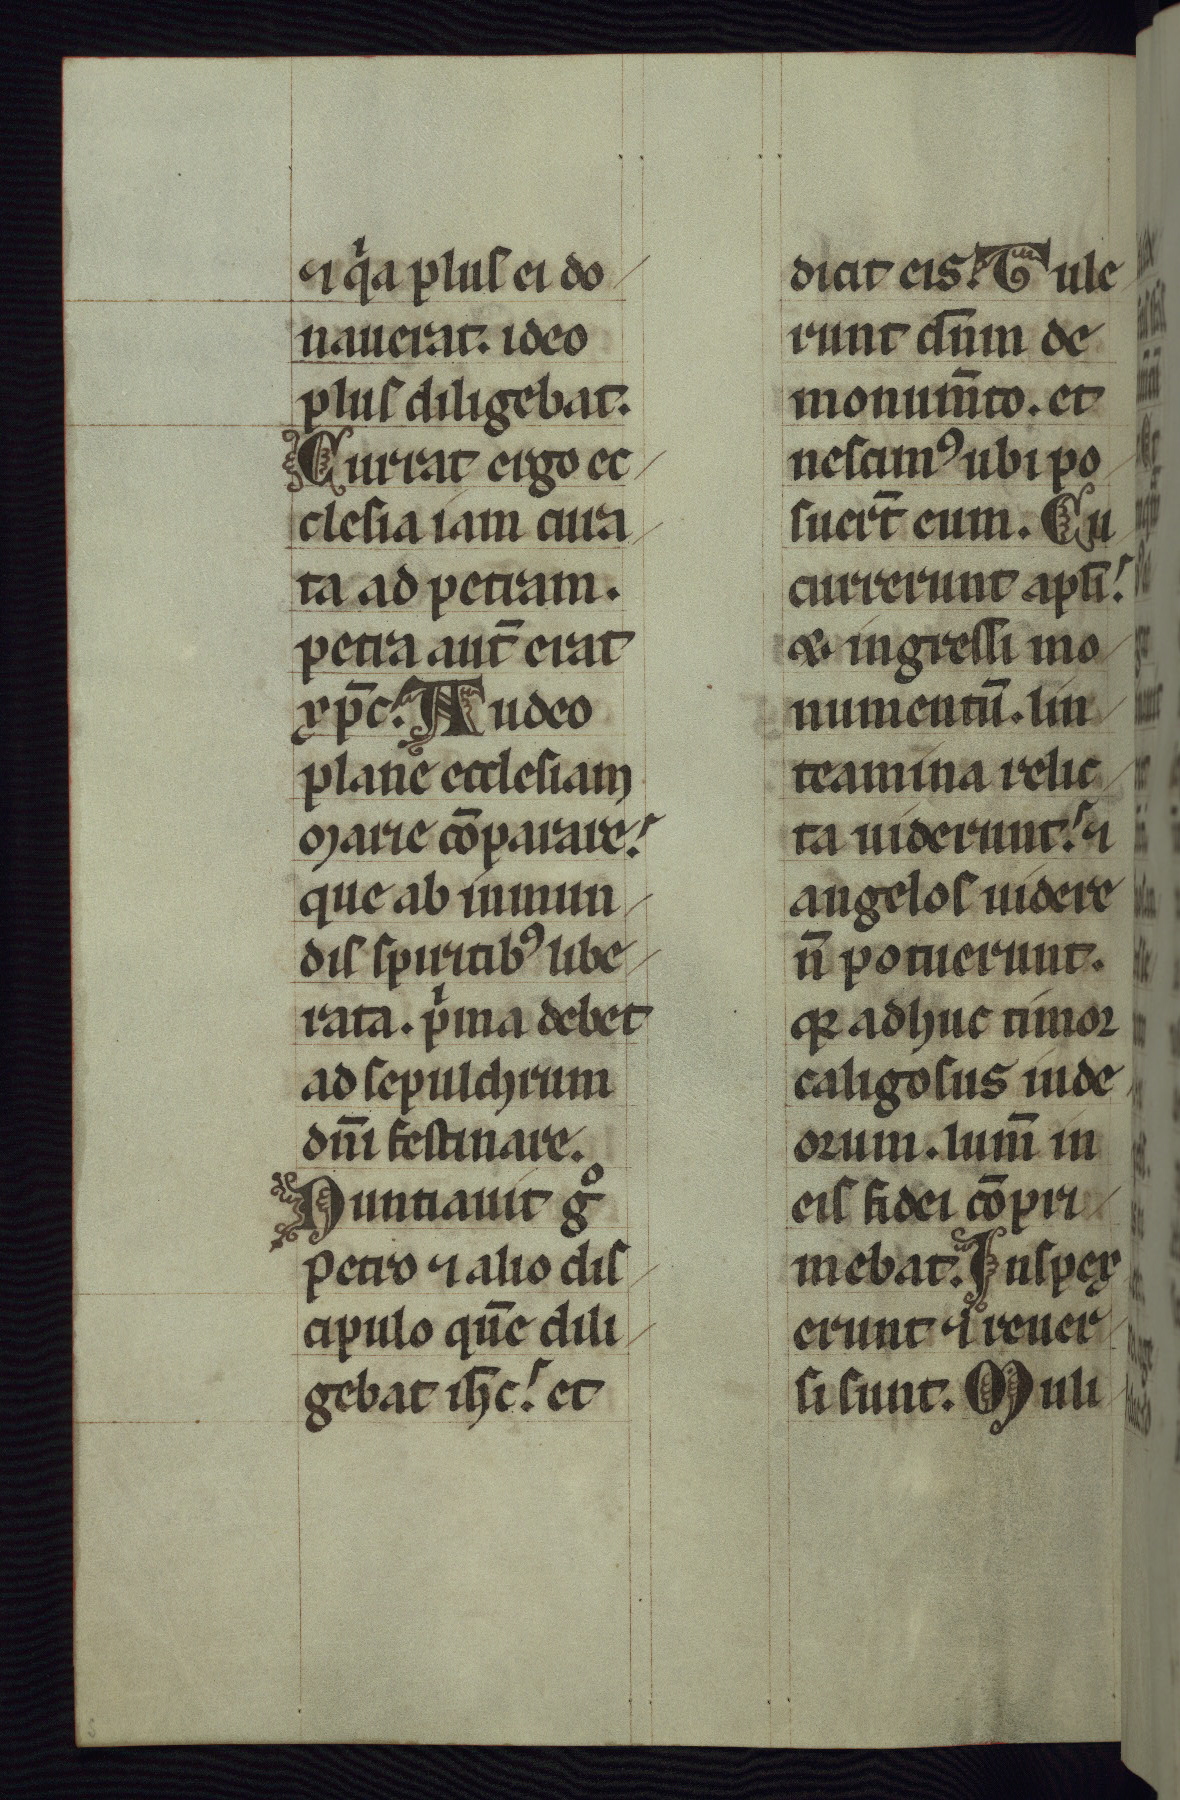 ⁊ qͥa pluſ ei do
nauerat. ideo
pluſ diligebat.
Currat ergo ec
cleſia iam cura
ta ad petram.
petra aut̄ erat
xp̄c. Audeo
plane eccleſiam
marie cōparare.
que ab inmun
diſ ſpiritibꝰ libe
rata. pͥma debet
ad ſepulchrum
dn̄i feſtinare.
Nuntiauit gͦ
petro ⁊ alio diſ
cipulo quē dili
gebat ih̄c. et
dicit eis. Tule
runt dn̄m de
monum̄to. et
neſcimꝰ ubi po
ſuer̄t eum. Cu
currerunt apl̄i.
&. ingreſſi mo
numentū. lin
teamina relic
ta uiderunt. ⁊
angeloſ uidere
n̄ potuerunt.
qꝛ adhuc timoꝛ
caligoſus iude
oꝛum. lum̄ in
eiſ fidei cōpri
mebat. Inſpex
erunt ⁊ reuer
ſi ſunt. Muli